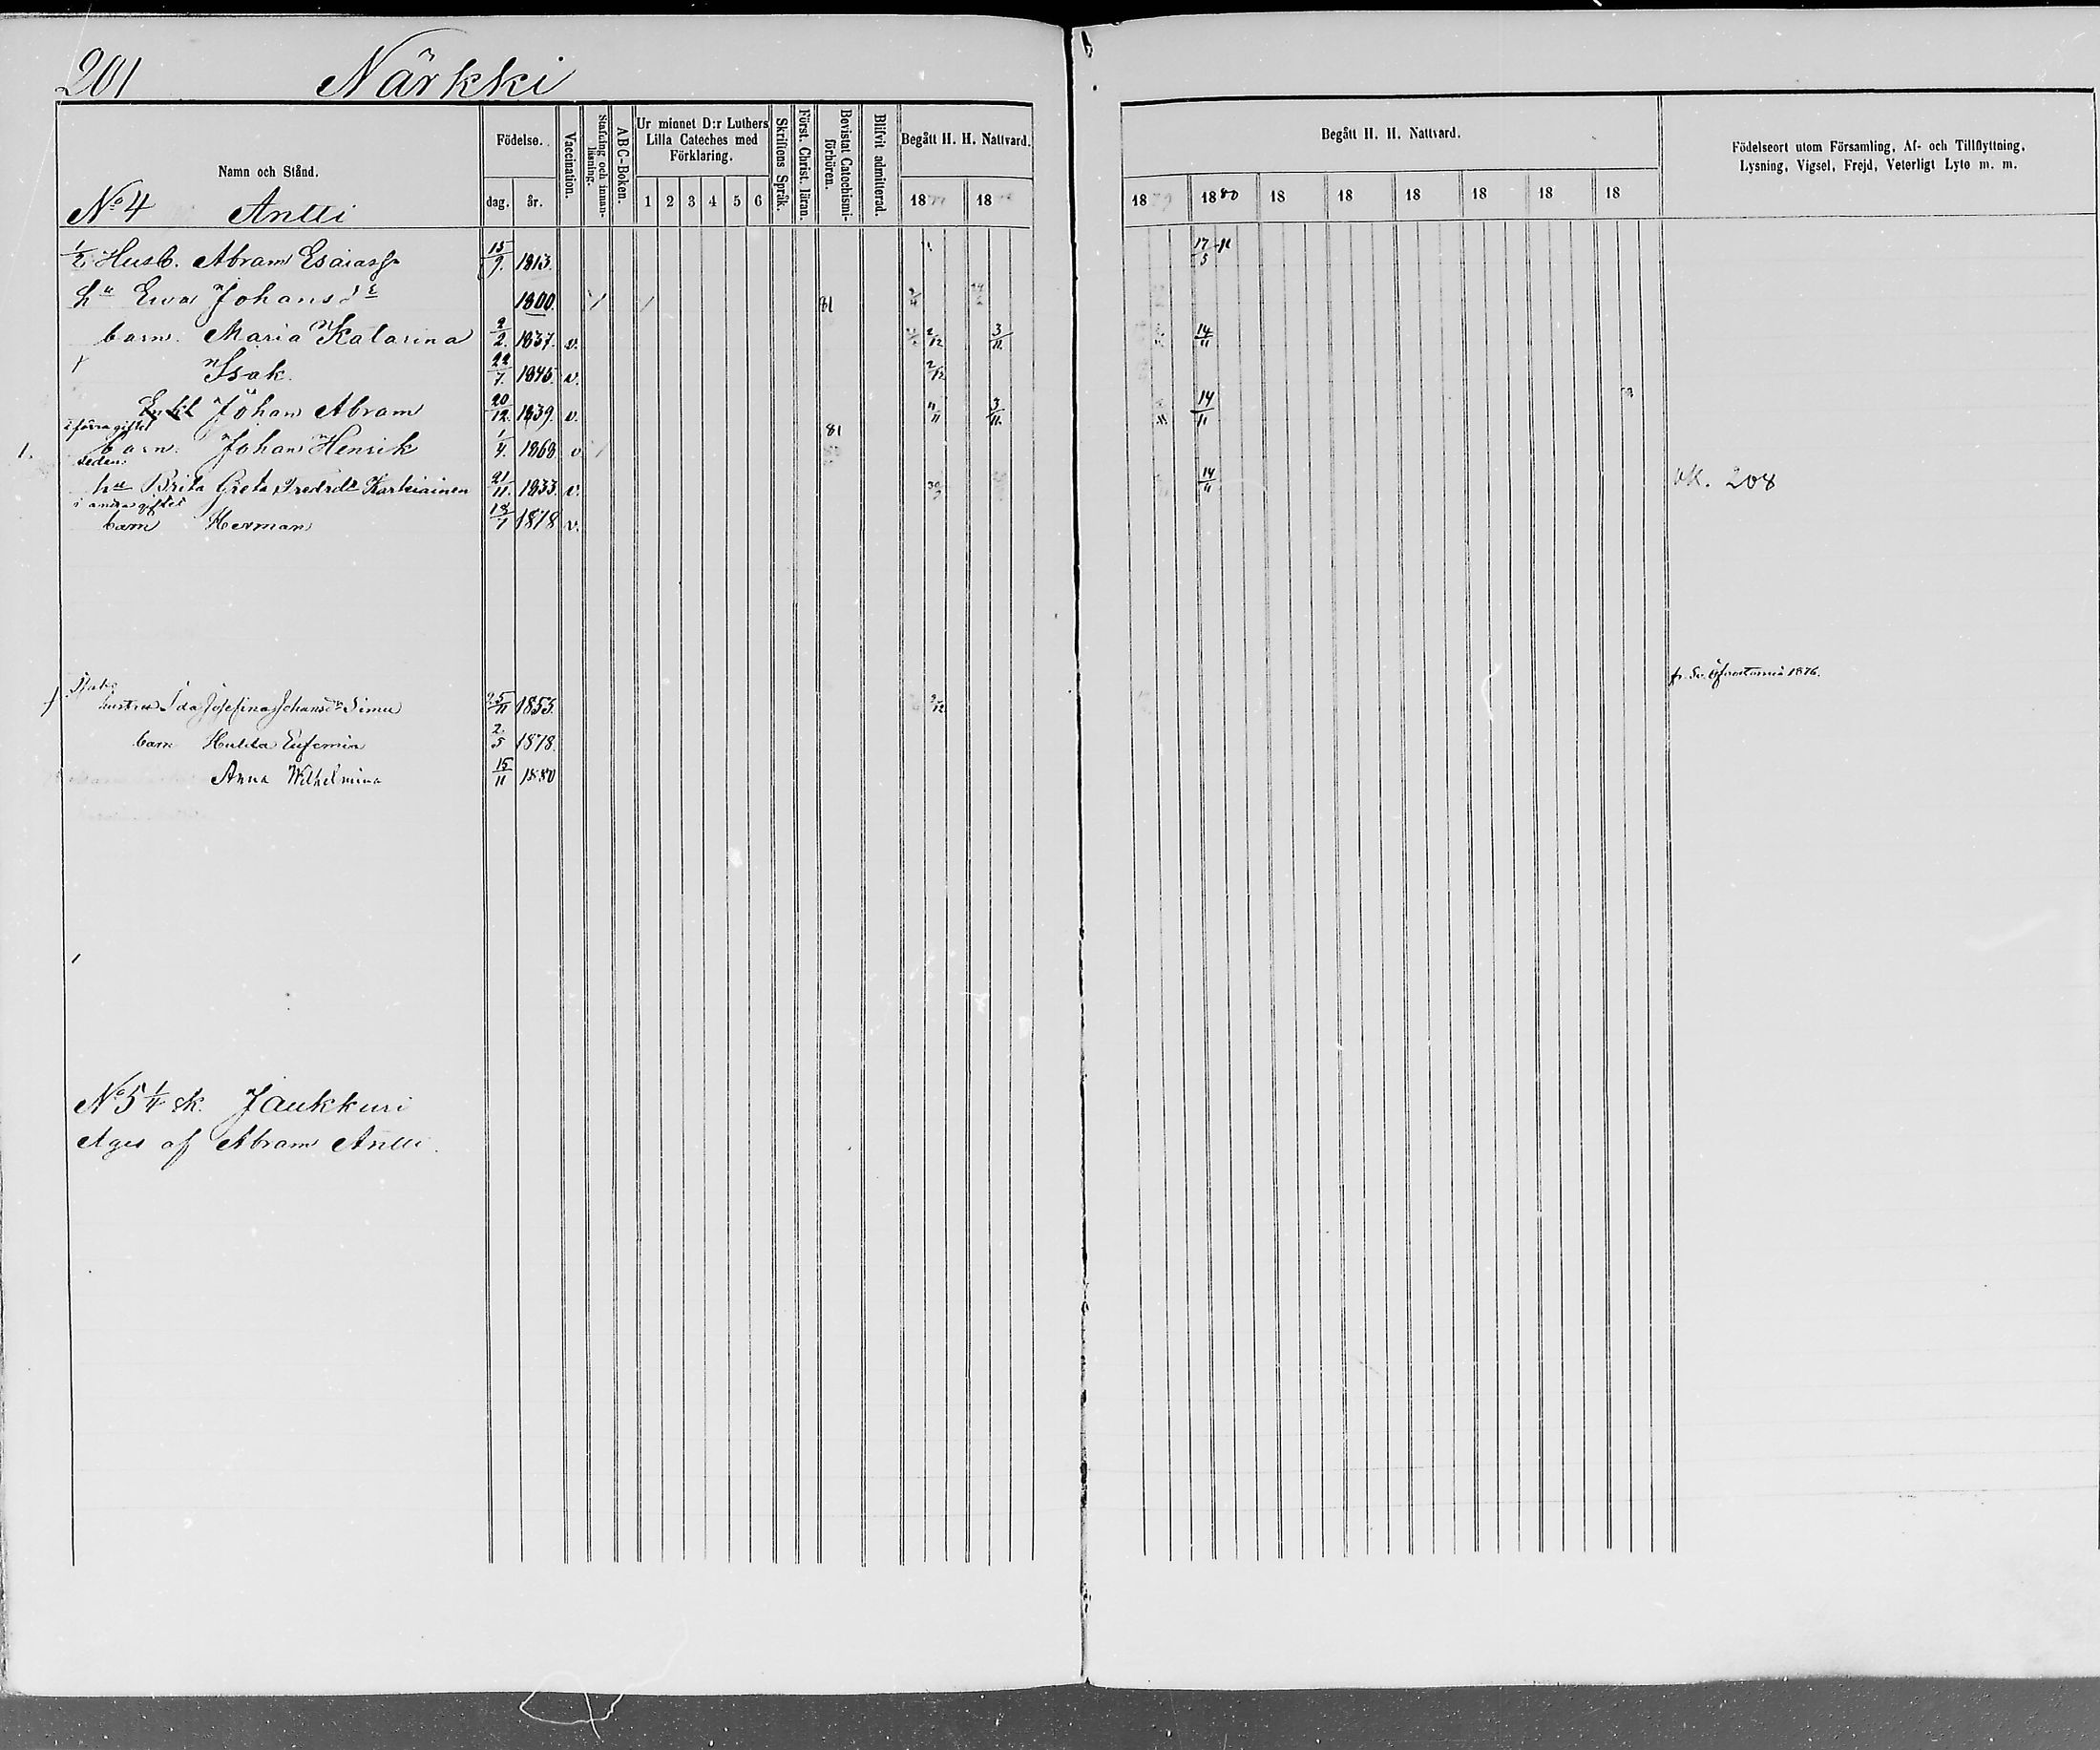 201 Närkki
Namn och Stånd.
Födelse.
dag. år.
Vaccination.
Stafning och innanläsning.
ABC-Boken.
Ur minnet D:r Luthers Lilla Cateches med Förklaring.
1 2 3 4 5 6
Skriftens Språk.
Först. Christ. läran.
Bevistat Catechismi-förhören.
Blifvit admitterad.
Begått H. H. Nattvard.
18 18
Begått H. H. Nattvard.
1879 1880 18 18 18 18 18 18
Födelseort utom Församling, Af- och Tillflyttning,
Lysning, Vigsel, Frejd, Veterligt Lyte m. m.
No 4 Antti
1/2 Husb. Abram Esaiass. 15/9. 1813. 17/5
hu Ewa Johansdr 1800. 81
barn. Maria Katarina 2/2. 1837. v. 2/12 3/11. 14/11
Isak. 22/7. 1845. v. 2/12
Johan Abram 20/12. 1839. v. 11/11 3/11. 14/11
i förra giftet
1. barn. Johan Henrik 1/4. 1868 v 81
sedan:
hu Brita Greta Fredrdr Karkiainen 21/11. 1833. v. 30/9 14/11 vk. 208
i andra giftet
barn Herman 13/1 1878 v.
Isaks
hustru Ida Josefina Johansdr Simu 25/11 1855. 2/12 fr. Sv. Öfvertorneå 1876.
barn Hulda Eufemia 2/5 1878.
Anna Wilhelmina 15/11 1880
No 5 1/4 sk. Jaukkuri
Äges af Abram Antti.